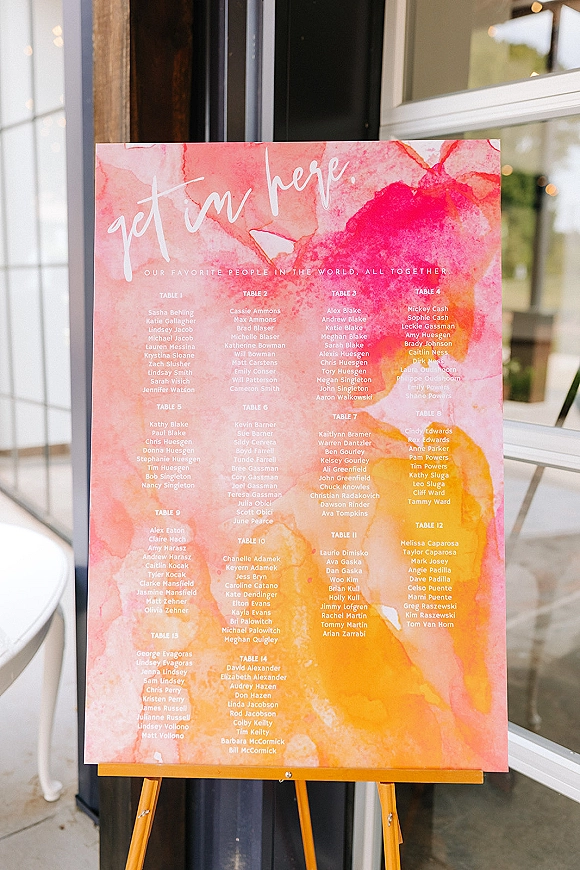 get in here.
OUR FAVORITE PEOPLE IN THE WORLD, ALL TOGETHER
TABLE 1
Sasha Behling
Katie Gallagher
Lindsey Jacob
Michael Jacob
Lauren Messina
Krystina Sloane
Zach Slusher
Lindsay Smith
Sarah Visich
Jennifer Watson
TABLE 2
Cassie Ammons
Max Ammons
Brad Blaser
Michelle Blaser
Katherine Bowman
Will Bowman
Matt Carstens
Emily Conser
Will Patterson
Cameron Smith
TABLE 3
Alex Blake
Andrew Blake
Katie Blake
Meghan Blake
Sarah Blake
Alexis Huesgen
Chris Huesgen
Tory Huesgen
Megan Singleton
John Singleton
Aaron Walkowski
TABLE 4
Mickey Cash
Sophie Cash
Leckie Gassman
Amy Huesgen
Brady Johnson
Caitlin Ness
Dirk Ness
Laura Oudshoorn
Philippe Oudshoorn
Emily Powers
Shane Powers
TABLE 5
Kathy Blake
Paul Blake
Chris Huesgen
Donna Huesgen
Stephanie Huesgen
Tim Huesgen
Bob Singleton
Nancy Singleton
TABLE 6
Kevin Barner
Sue Barner
Sibby Carrera
Boyd Farrell
Tunde Farrell
Bree Gassman
Cory Gassman
Joel Gassman
Teresa Gassman
Julia Obici
Scott Obici
June Pearce
TABLE 7
Kaitlynn Bramer
Warren Dantzler
Ben Gourley
Kelsey Gourley
Ali Greenfield
John Greenfield
Chuck Knowles
Christian Radakovich
Dawson Rinder
Ava Tompkins
TABLE 8
Cindy Edwards
Rox Edwards
Anne Parker
Pam Powers
Tim Powers
Kathy Sluga
Leo Sluga
Cliff Ward
Tammy Ward
TABLE 9
Alex Eaton
Claire Hach
Amy Harasz
Andrew Harasz
Caitlin Kocak
Tyler Kocak
Clarke Mansfield
Jasmine Mansfield
Matt Zehner
Olivia Zehner
TABLE 10
Chanelle Adamek
Kevern Adamek
Jess Bryn
Caroline Catano
Kate Dendinger
Elton Evans
Kayla Evans
Bri Palowitch
Michael Palowitch
Meghan Quigley
TABLE 11
Laurie Dimisko
Ava Gaska
Dan Gaska
Woo Kim
Brian Kull
Holly Kull
Jimmy Lofgren
Rachel Martin
Tommy Martin
Arian Zarrabi
TABLE 12
Melissa Caparosa
Taylor Caparosa
Mark Josey
Angie Padilla
Dave Padilla
Celso Puente
Mami Puente
Greg Raszewski
Kim Raszewski
Tom Van Horn
TABLE 13
George Evagoras
Lindsey Evagoras
Jenna Lindsey
Sam Lindsey
Chris Perry
Kristen Perry
James Russell
Julianne Russell
Lindsey Vollono
Matt Vollono
TABLE 14
David Alexander
Elizabeth Alexander
Audrey Hazen
Don Hazen
Linda Jacobson
Rod Jacobson
Colby Keilty
Tim Keilty
Barbara McCormick
Bill McCormick